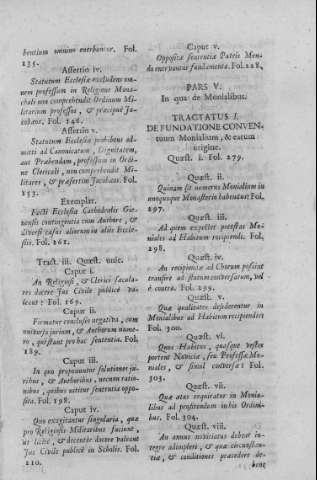 bentium unium enervantur. Fol.
235.
Assertio iv.
Statutum Ecclesiæ excludens unum
professum in Religione Monachali
non comprehendit Ordinum Militarium
professos, & præcipuè Jacobæos,
Fol. 246.
Assertio v.
Statutum Ecclesiæ prohibens admitti
ad Canonicatum, Dignitatem,
aut Præbendam, professum in Ordine
Clericali, non comprehendit Militares,
& præsertim Jacobæos. Fol.
253.
Exemplar.
Facti Ecclesiæ Cathedralis
contingentia cum Authore, &
diversi casus aliorum in aliis Ecclesiis.
Fol. 261.
Tract. iii. Quæst. unic.
Caput i.
An Religiosis, & Clerici sæculares
docere Jus Civile publicè valeant?
Fol. 269.
Caput ii.
Firmatur conclusio negativa, cum
universo jurium, & Authorum numero,
quæ stant pro hac sententia. Fol.
289.
Caput iii.
In quo proponuntur solutiones juribus,
& Authoribus, necnon rationibus,
quibus nititur sententia opposita.
Fol. 298.
Caput iv.
Quo exagitantur singularia, quæ
pro Religiosis Militaribus faciunt,
ut licitè, & decenter docere valeant
Jus Civile publicè in Scholis. Fol.
210.
Caput v.
Oppositæ sententiæ Patris Mendo
enervantur fundamenta. Fol. 228.
PARS V.
In qua de Monialibus.
TRACTATUS I.
DE FUNDATIONE CONVENtuum
Monialium, & earum
origine.
Quæst. i. Fol. 279.
Quæst. ii.
Quinam sit numerus Monialium in
unoquoque Monasterio habendus? Fol.
297.
Quæst. iii.
Ad quem expectet potestas Moniales
ad Habitum recipiendi. Fol.
298.
Quæst. iv.
An recipiendæ ad Chorum possint
transire ad statum conversarum, vel
è contra. Fol. 299.
Quæst. v.
Quæ qualitates desiderentur in
Monialibus ad Habitum recipiendis?
Fol. 300.
Quæst. vi.
Quos Habitus, quasque vestes
portent Novitiæ, seu Professæ Moniales,
& simul conversæ? Fol.
303.
Quæst. vii.
Quæ ætas requiratur in Monialibus
ad profitendum in his Ordinibus.
Fol. 304.
Quæst. viii.
An annus novitiatus debeat integre
adimpleri, & quæ circunstantiæ,
& conditiones præcedere debeant